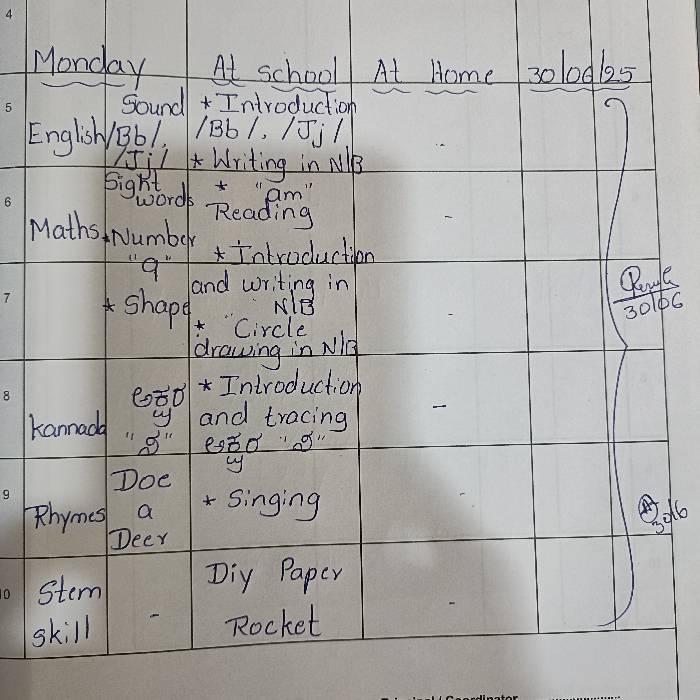 4
Monday At school At Home 30/06/25
5
English Sound /Bb/, /Jj/ * Introduction /Bb/, /Jj/ -
* Writing in N/B
Sight words * "am" Reading
6
Maths * Number "9" * Introduction and writing in N/B -
7
* Shape * Circle drawing in N/B -
30/06
8
Kannada ಅಕ್ಷರ * Introduction and tracing ಅಕ್ಷರ -
9
Rhymes Doe a Deer * Singing -
30/6
10
Stem skill - Diy Paper Rocket -
Principal / Coordinator